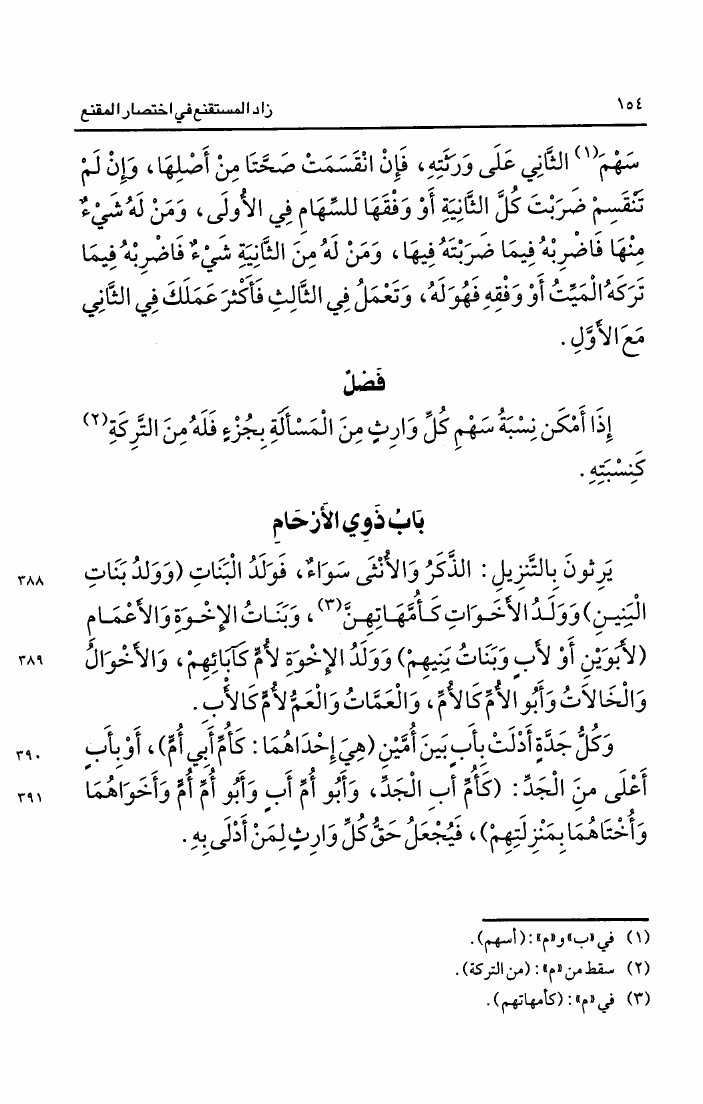 ١٥٤ زاد المستقنع في اختصار المقنع
سَهْمَ(١) الثَّانِي عَلَى وَرَثَتِهِ، فَإِنْ انْقَسَمَتْ صَحَّتَا مِنْ أَصْلِهَا، وَإِنْ لَمْ
تَنْقَسِمْ ضَرَبْتَ كُلَّ الثَّانِيَةِ أَوْ وَفْقَهَا للسِّهَامِ فِي الأُولَى، وَمَنْ لَهُ شَيْءٌ
مِنْهَا فَاضْرِبْهُ فِيمَا ضَرَبْتَهُ فِيهَا، وَمَنْ لَهُ مِنَ الثَّانِيَةِ شَيْءٌ فَاضْرِبْهُ فِيمَا
تَرَكَهُ الْمَيِّتُ أَوْ وَفْقِهِ فَهُوَ لَهُ، وَتَعْمَلُ فِي الثَّالِثِ فَأَكْثَرَ عَمَلَكَ فِي الثَّانِي
مَعَ الأَوَّلِ.
فَصْلٌ
إِذَا أَمْكَن نِسْبَةُ سَهْمِ كُلِّ وَارِثٍ مِنَ الْمَسْأَلَةِ بِجُزْءٍ فَلَهُ مِنَ التَّرِكَةِ(٢)
كَنِسْبَتِهِ.
بَابُ ذَوِي الأَرْحَامِ
يَرِثونَ بِالتَّنْزِيلِ: الذَّكَرُ وَالأُنْثَى سَوَاءٌ، فَوَلَدُ الْبَنَاتِ (وَوَلَدُ بَنَاتِ ٣٨٨
الْبَنِينِ) وَوَلَدُ الأَخَوَاتِ كَأُمَّهَاتِهِنَّ(٣)، وَبَنَاتُ الإِخْوَةِ وَالأَعْمَامِ
(لأَبَوَيْنِ أَوْ لأَبٍ وَبَنَاتُ بَنِيهِمْ) وَوَلَدُ الإِخْوَةِ لأُمٍّ كَآبَائِهِمْ، وَالأَخْوَالُ ٣٨٩
وَالْخَالاَتُ وَأَبُو الأُمِّ كَالأُمِّ، وَالْعَمَّاتُ وَالْعَمُّ لأُمٍّ كَالأَبِ.
وَكُلُّ جَدَّةٍ أَدْلَتْ بِأَبٍ بَينَ أُمَّيْنِ (هِيَ إِحْدَاهُمَا: كَأُمِّ أَبِي أُمٍّ)، أَوْ بِأَبٍ ٣٩٠
أَعْلَى منِ الْجَدِّ: (كَأُمِّ أَبِ الْجَدِّ، وَأَبُو أُمِّ أَبٍ وَأَبُو أُمِّ أُمٍّ وَأَخَوَاهُمَا ٣٩١
وَأُخْتَاهُمَا بِمَنْزِلَتِهِمْ)، فَيُجْعَلُ حَقُّ كُلِّ وَارِثٍ لِمَنْ أَدْلَى بِهِ.
(١) في «ب» و«م»: (أسهم).
(٢) سقط من «م»: (من التركة).
(٣) في «م»: (كأمهاتهم).